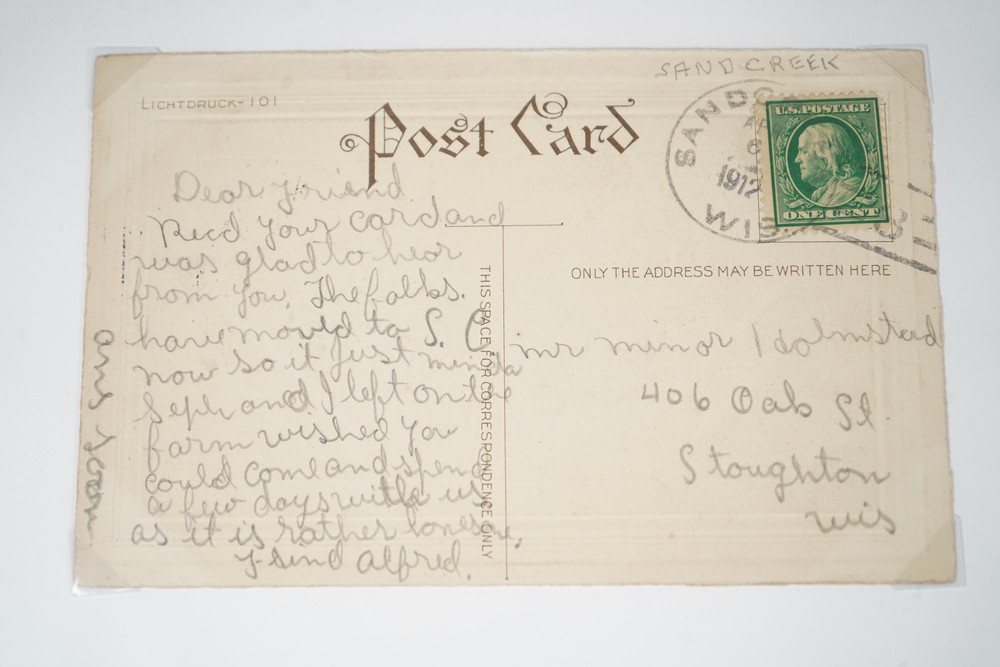 SANDCREEK
LICHTDRUCK-101
Post Card
SAND
AP
6
1912
WIS
U.S. POSTAGE
ONE CENT
Dear friend
Recd your card and
was glad to hear
from you. The folks.
have moved to S. C.
now so it just minda
Seph and I left on the
farm wished you
could come and spend
a few days with us
as it is rather lonesome,
friend Alfred.
ans soon
THIS SPACE FOR CORRESPONDENCE ONLY
ONLY THE ADDRESS MAY BE WRITTEN HERE
mr minor Holmstead
406 Oak St.
Stoughton
wis